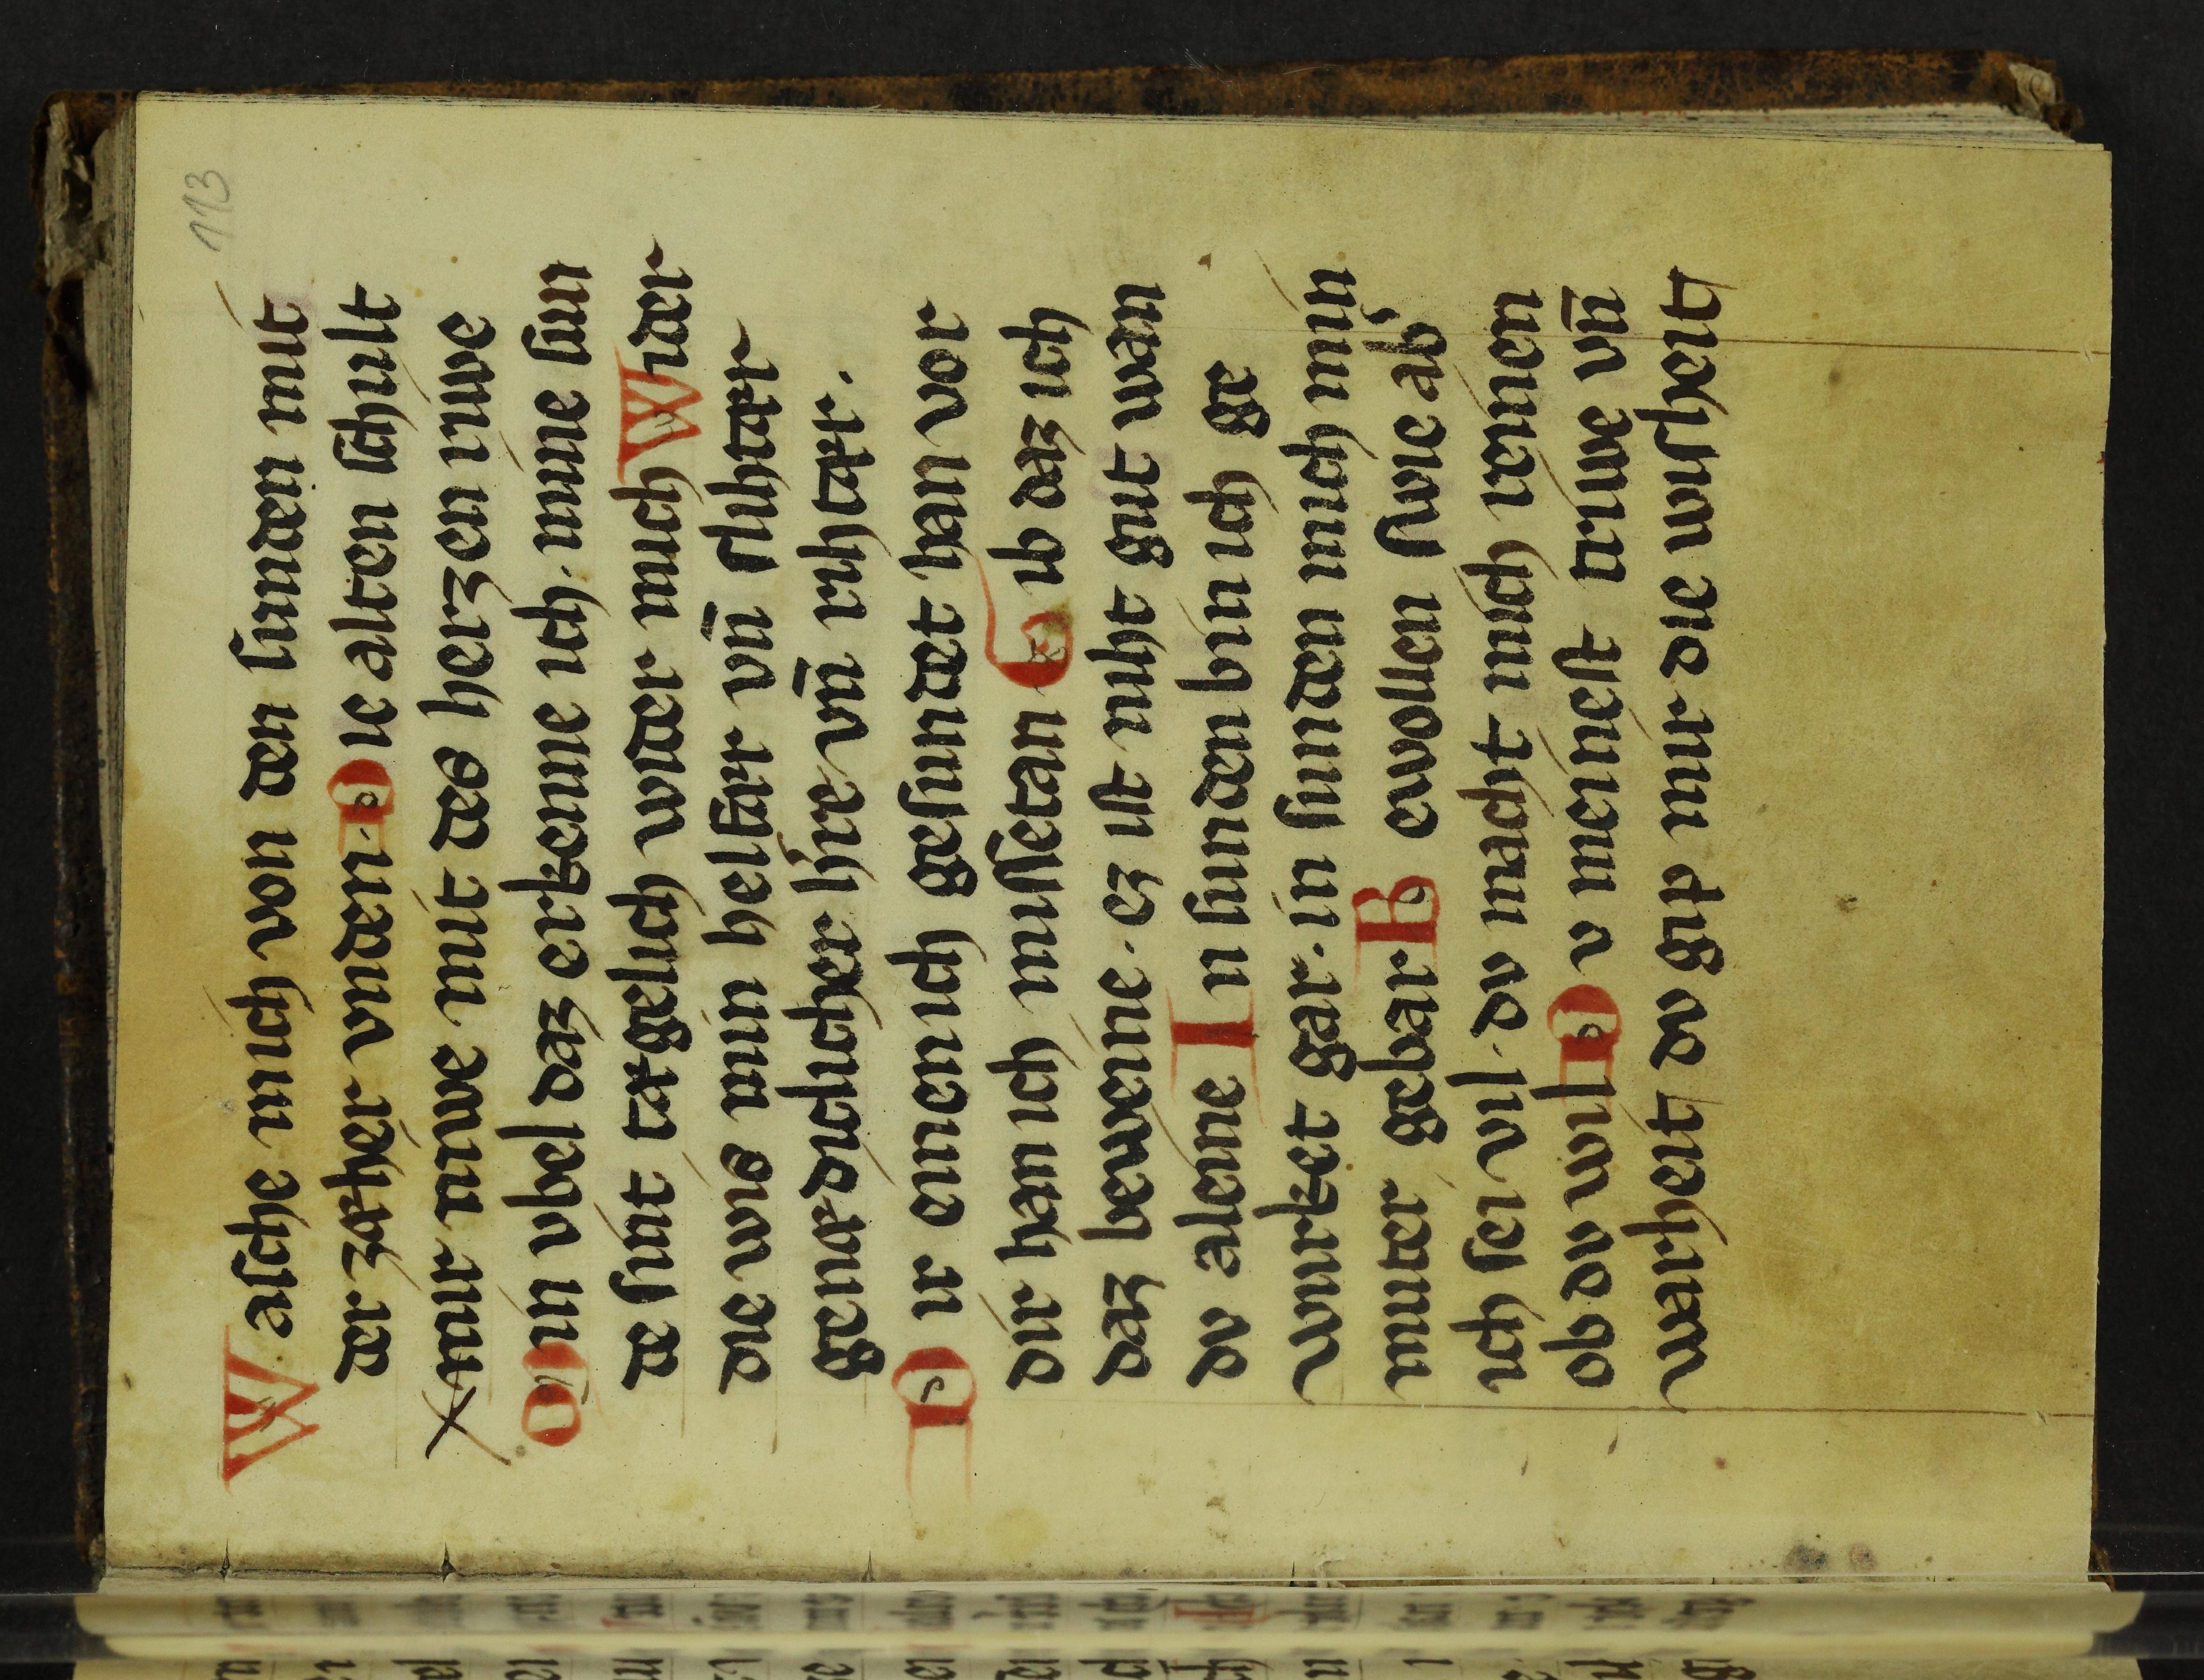 113
Wasche mich von den sunden mit
der zæher vnden. Die alten schult
mir niwe mit des herzen riwe
Min vbel daz erkenne ich. mine sun
de sint tægelich wider mich Wider
die wis min helfær vn̄ slihtær
genædichlicher h̓re vn̄ rihtær.
Dir einen ich gesundet han vor
dir han ich missetan Gib daz ich
daz beweine. ez ist niht gut wan
dv aleine In sunden bin ich ge
wurket gar. in sunden mich min
muter gebar Bewollen swie ab̓
ich sei vil. dv macht mich reinen
ob dv wil Dv meinest triwe vn̄
warheit dv gip mir die wisheit